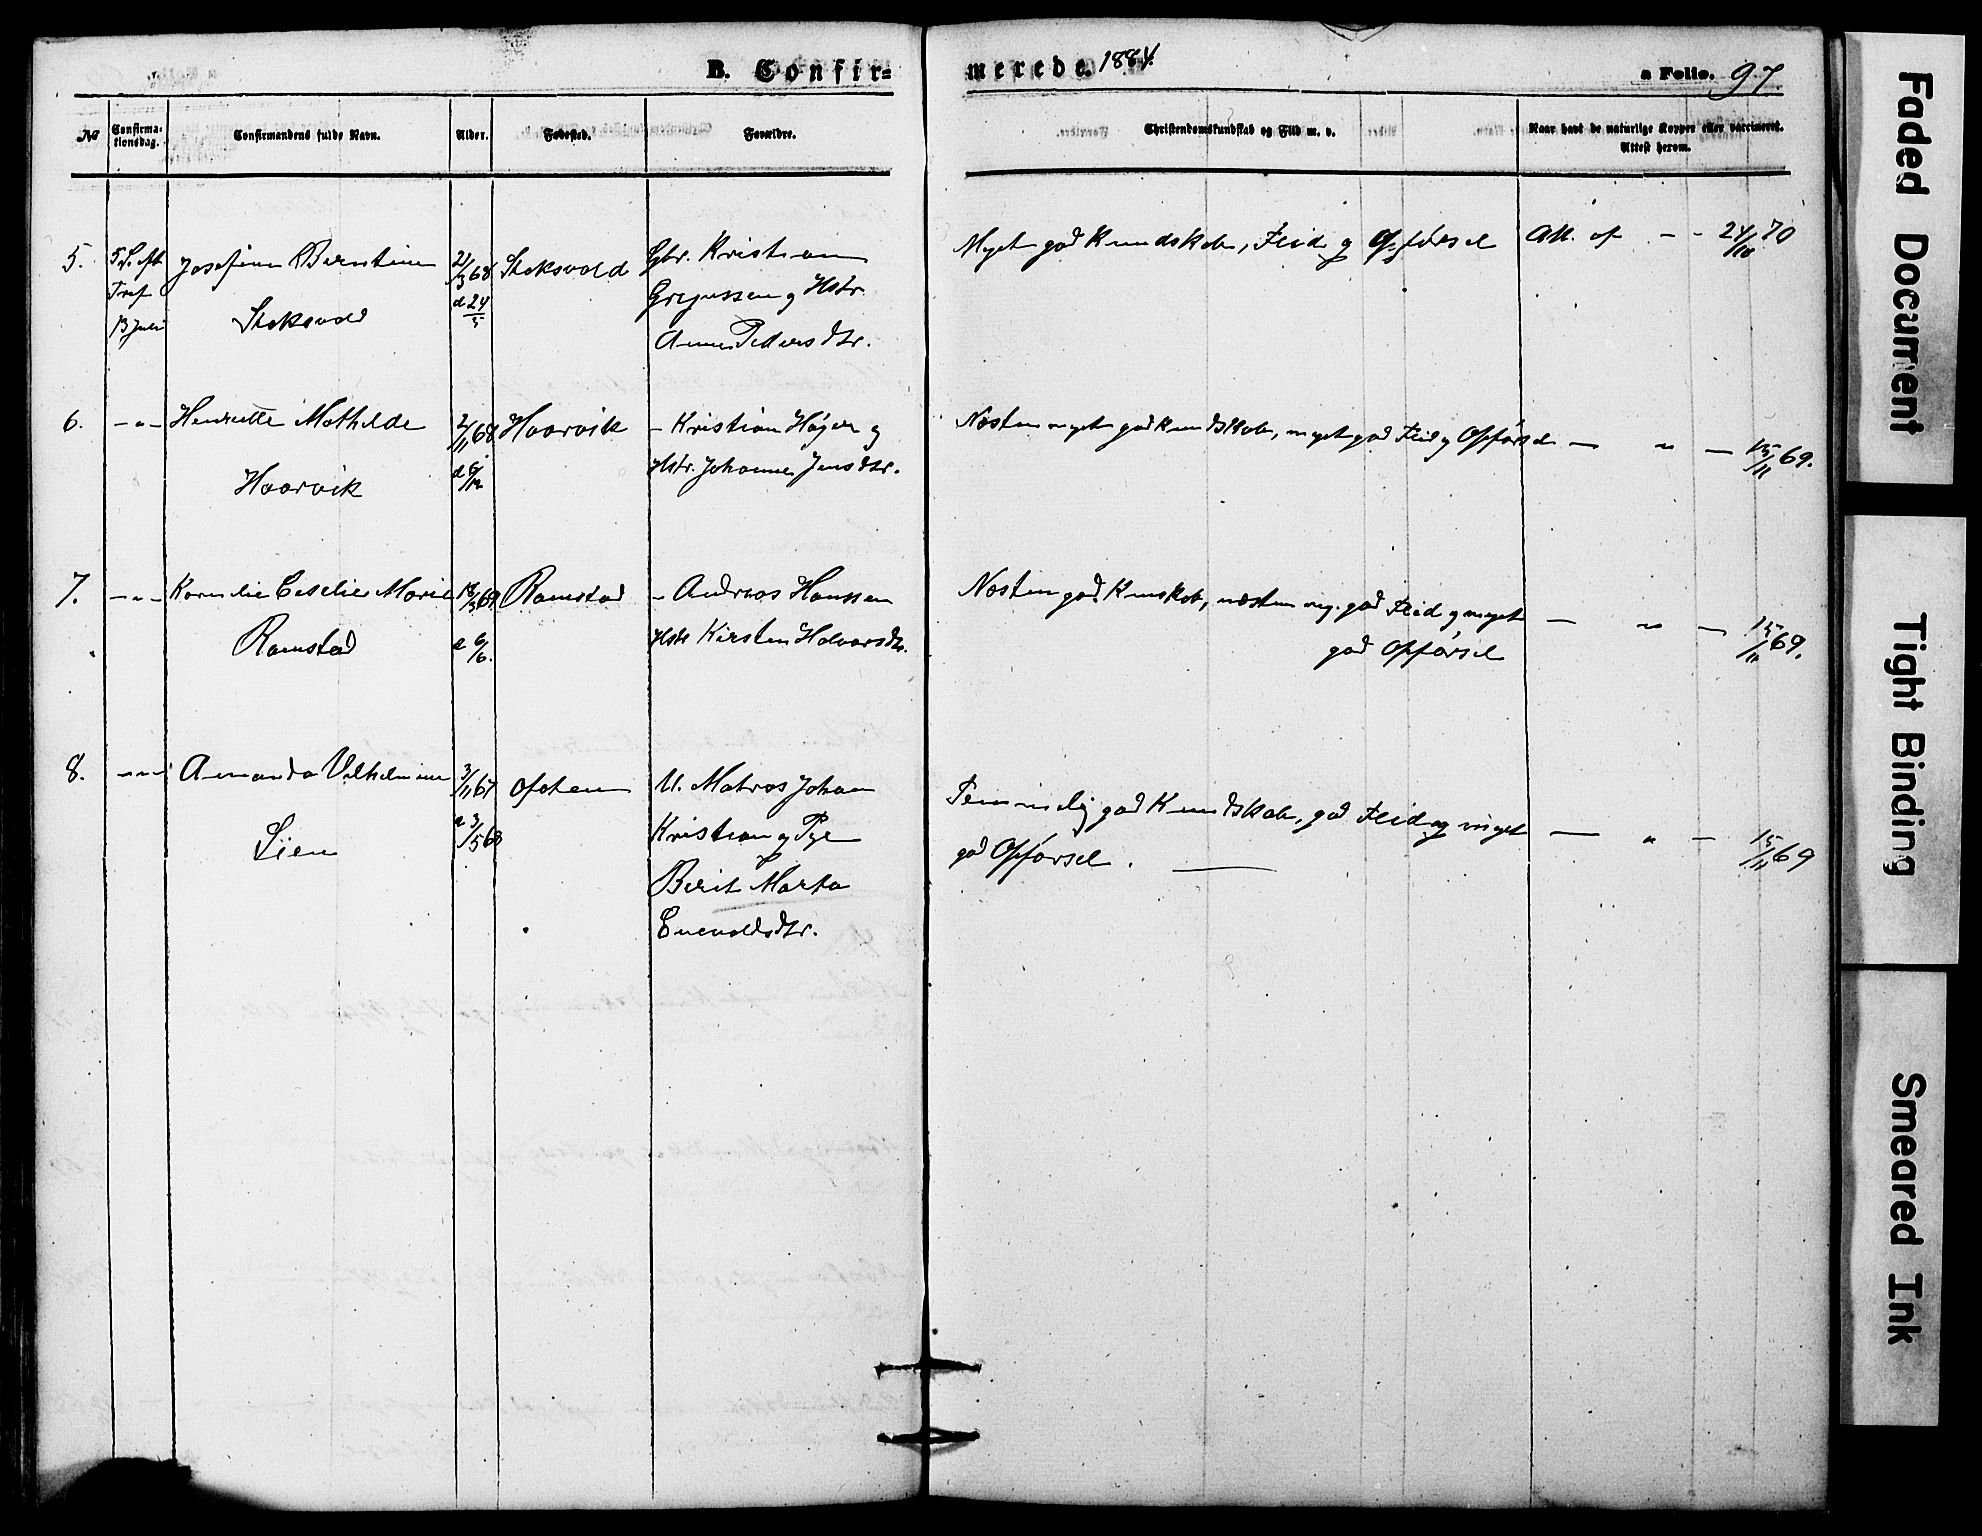 B. Confir=
merede. 1884.
a Folio. 97.
No
Confirma-
tionsdag.
Confirmandens fulde Navn.
Alder.
Fødested.
Forældre.
Christendomskundskab og Flid m. v.
Naar havt de naturlige Kopper eller vaccineret.
Attest herom.
5. 5 S. eft. Josefine Berntine 21/3 68 Stoksvold Gbr. Kristian
Meget god Kundskab, Flid og Opførsel Att. af - - 24/10 70
Tref d 24/5 Gregussen og Hstr.
13 Juli Stoksvold Anne Peders dtr.
6. - " - Henriette Mathilde 2/11 68 Haarvik - Kristian Højer og
Næsten meget god Kundskab, meget god Flid og Opførsel — " — 15/11 69.
Haarvik d 6/12 Hstr. Johanne Jens dtr.
7. - " - Kornelie Ceselie Marie 18/3 69 Ramstad - Andreas Hanssen
Næsten god Kunskab, næsten meg. god Flid og meget — " — 15/11 69.
Ramstad d 6/6. Hstr Kirsten Halvorsdtr.
god Opførsel
8. - " - Amanda Vilhelmine 3/11 67 Ofoten U. Matros Johan
Temmelig god Kundskab, god Flid og meget — " — 15/11 69
Lien d 3/5 68 Kristian og Pge
god Opførsel. —
Berit Marta
Enevoldsdtr.
Faded Document
Tight Binding
Smeared Ink